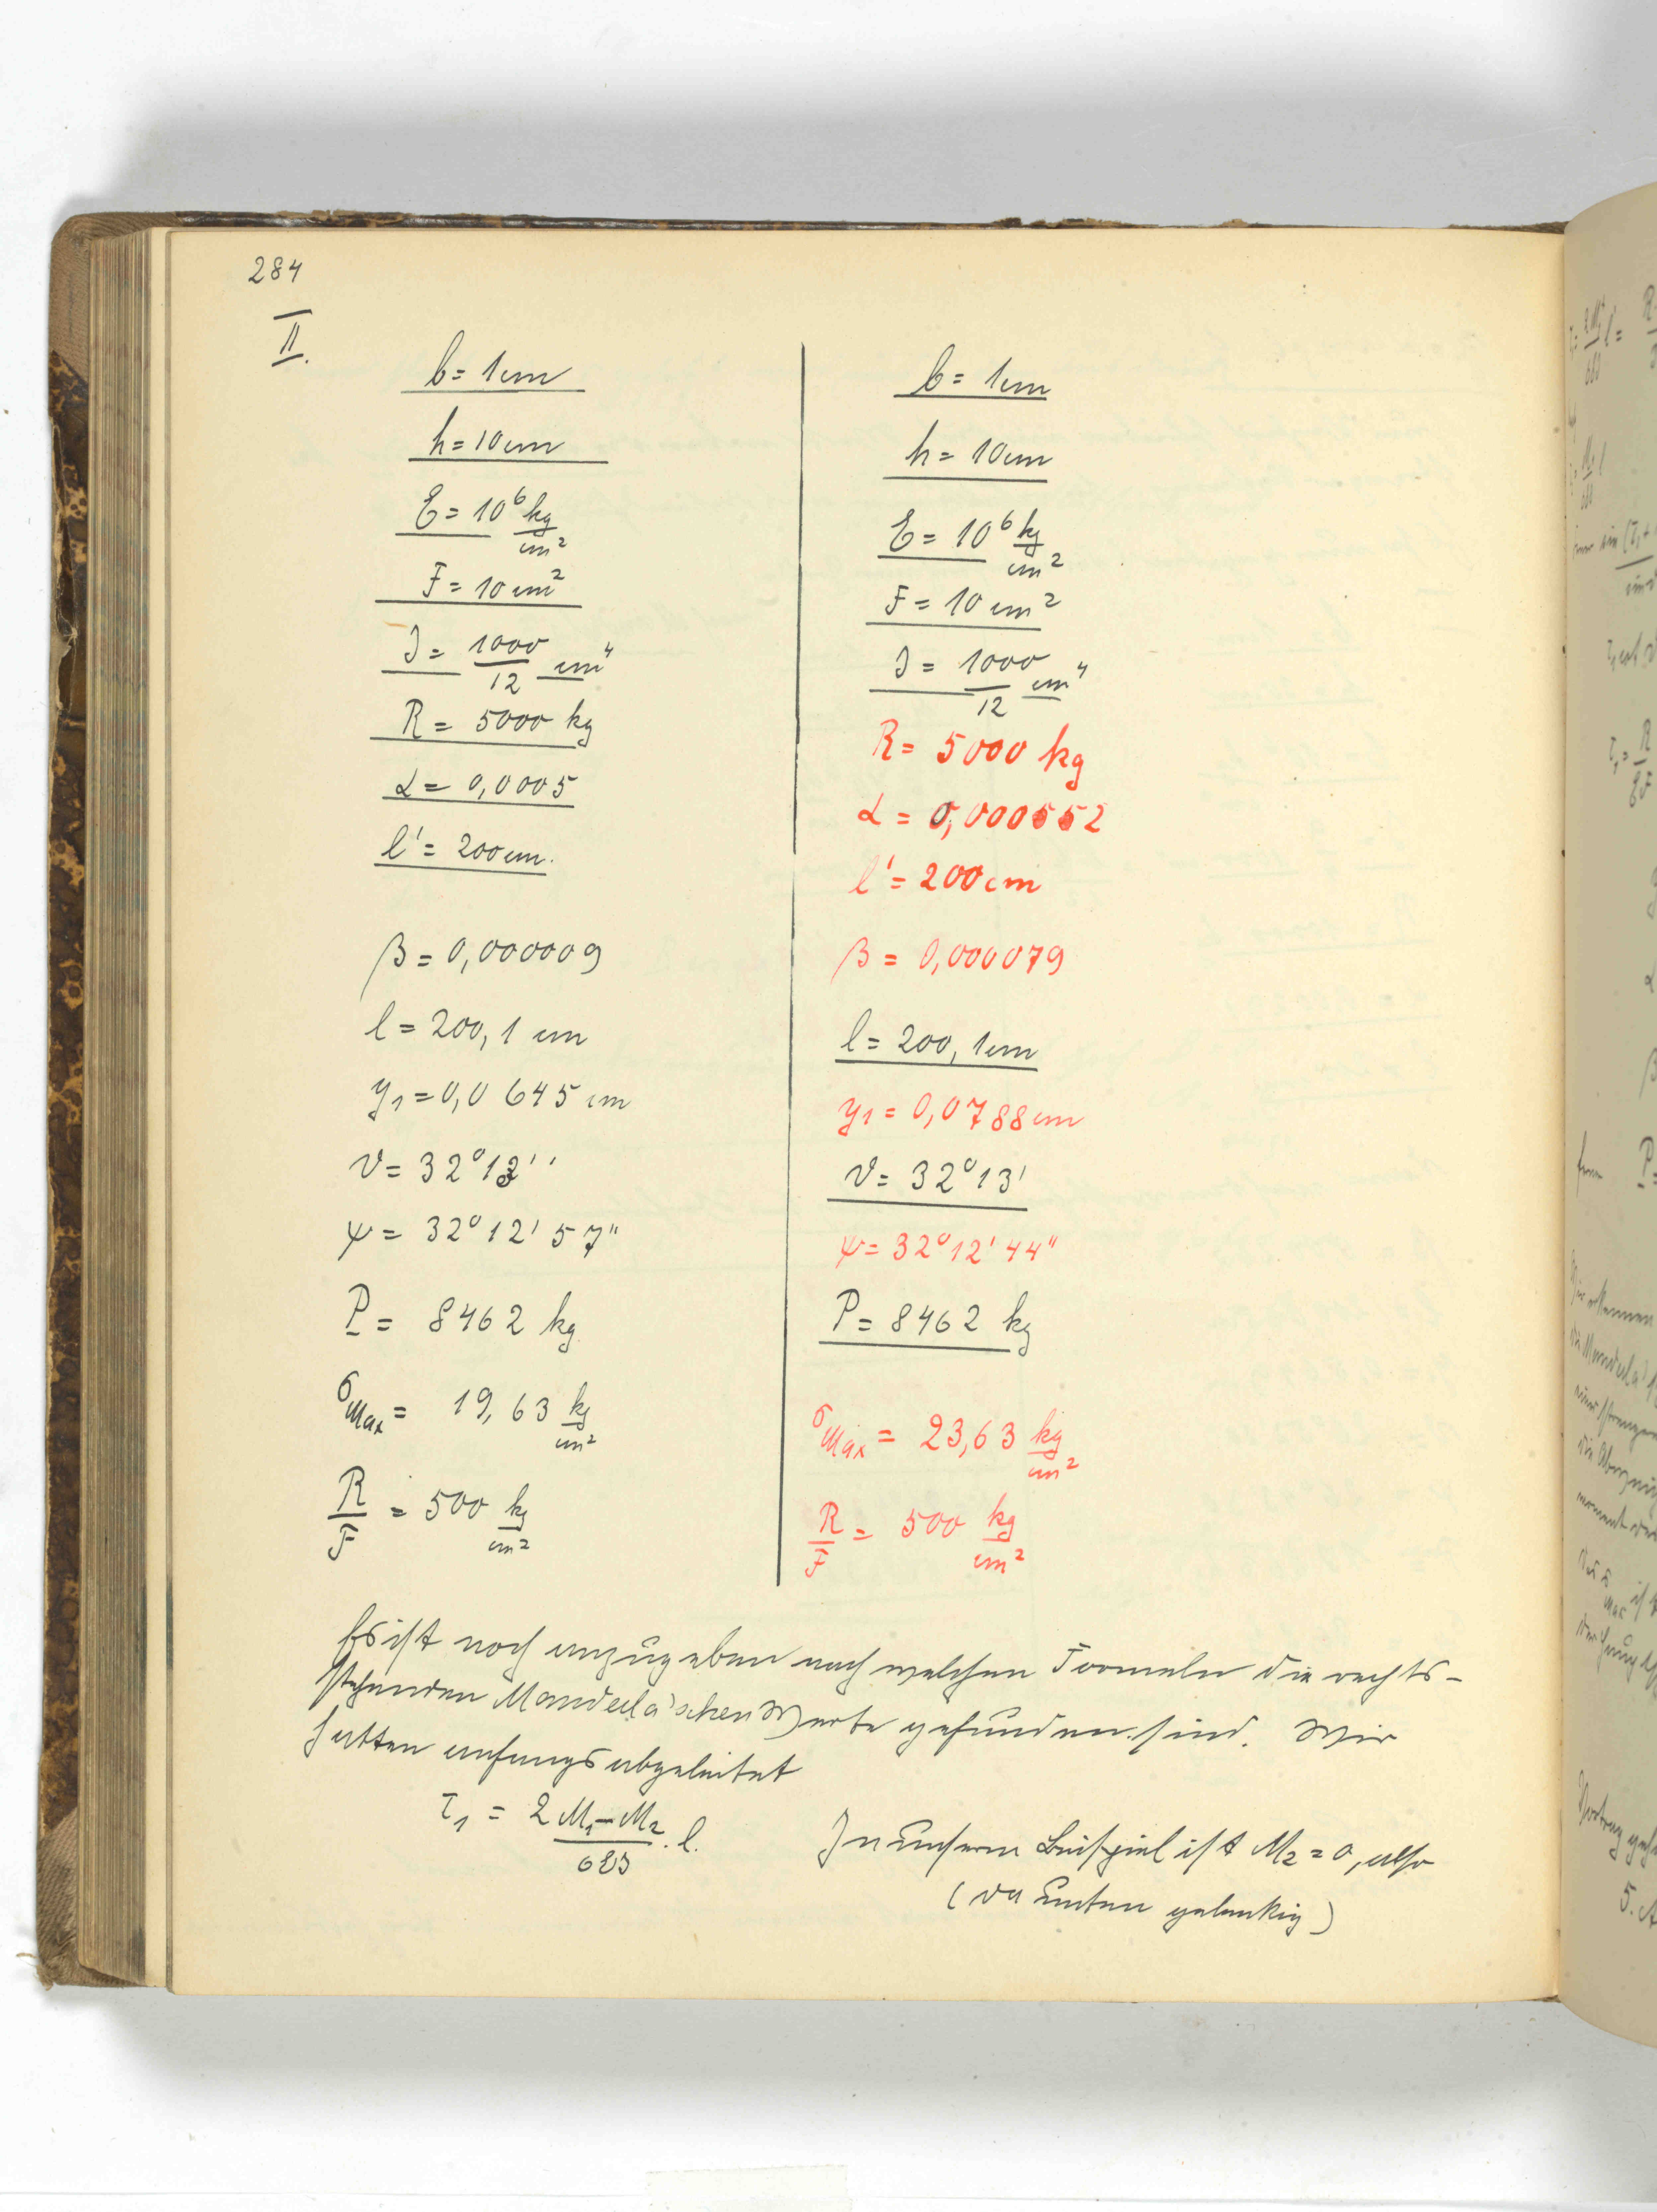 284
II.
b = 1 cm
h = 10 cm
E = 10⁶ kg/cm²
F = 10 cm²
J = 1000/12 cm⁴
R = 5000 kg
α = 0,0005
l' = 200 cm.
β = 0,000009
l = 200,1 cm
y₁ = 0,0645 cm
ϑ = 32° 13'
ψ = 32° 12' 57"
P = 8462 kg
σMax = 19,63 kg/cm²
R/F = 500 kg/cm²
b = 1 cm
h = 10 cm
E = 10⁶ kg/cm²
F = 10 cm²
J = 1000/12 cm⁴
R = 5000 kg
α = 0,000552
l' = 200 cm
β = 0,000079
l = 200,1 cm
y₁ = 0,0788 cm
ϑ = 32° 13'
ψ = 32° 12' 44"
P = 8462 kg
σMax = 23,63 kg/cm²
R/F = 500 kg/cm²
Es ist noch anzugeben nach welchen Formeln die rechts-
stehenden Manderla'schen Werte gefunden sind. Wir
hatten anfangs abgeleitet
τ₁ = 2M₁ − M₂/6EJ · l.
In unserm Beispiel ist M₂ = 0, also
(da unten gelenkig)